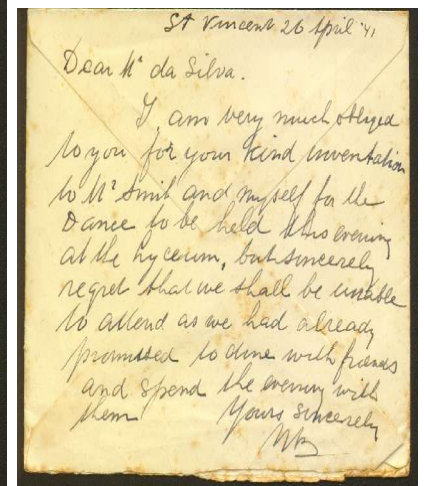 St Vincent 26 April '41
Dear Mr da Silva.
I am very much obliged
to you for your kind inventation
to Mr Smit and myself for the
Dance to be held this evening
at the Lyceum, but sincerely
regret that we shall be unable
to attend as we had already
promised to dine with friends
and spend the evening with
them Yours sincerely